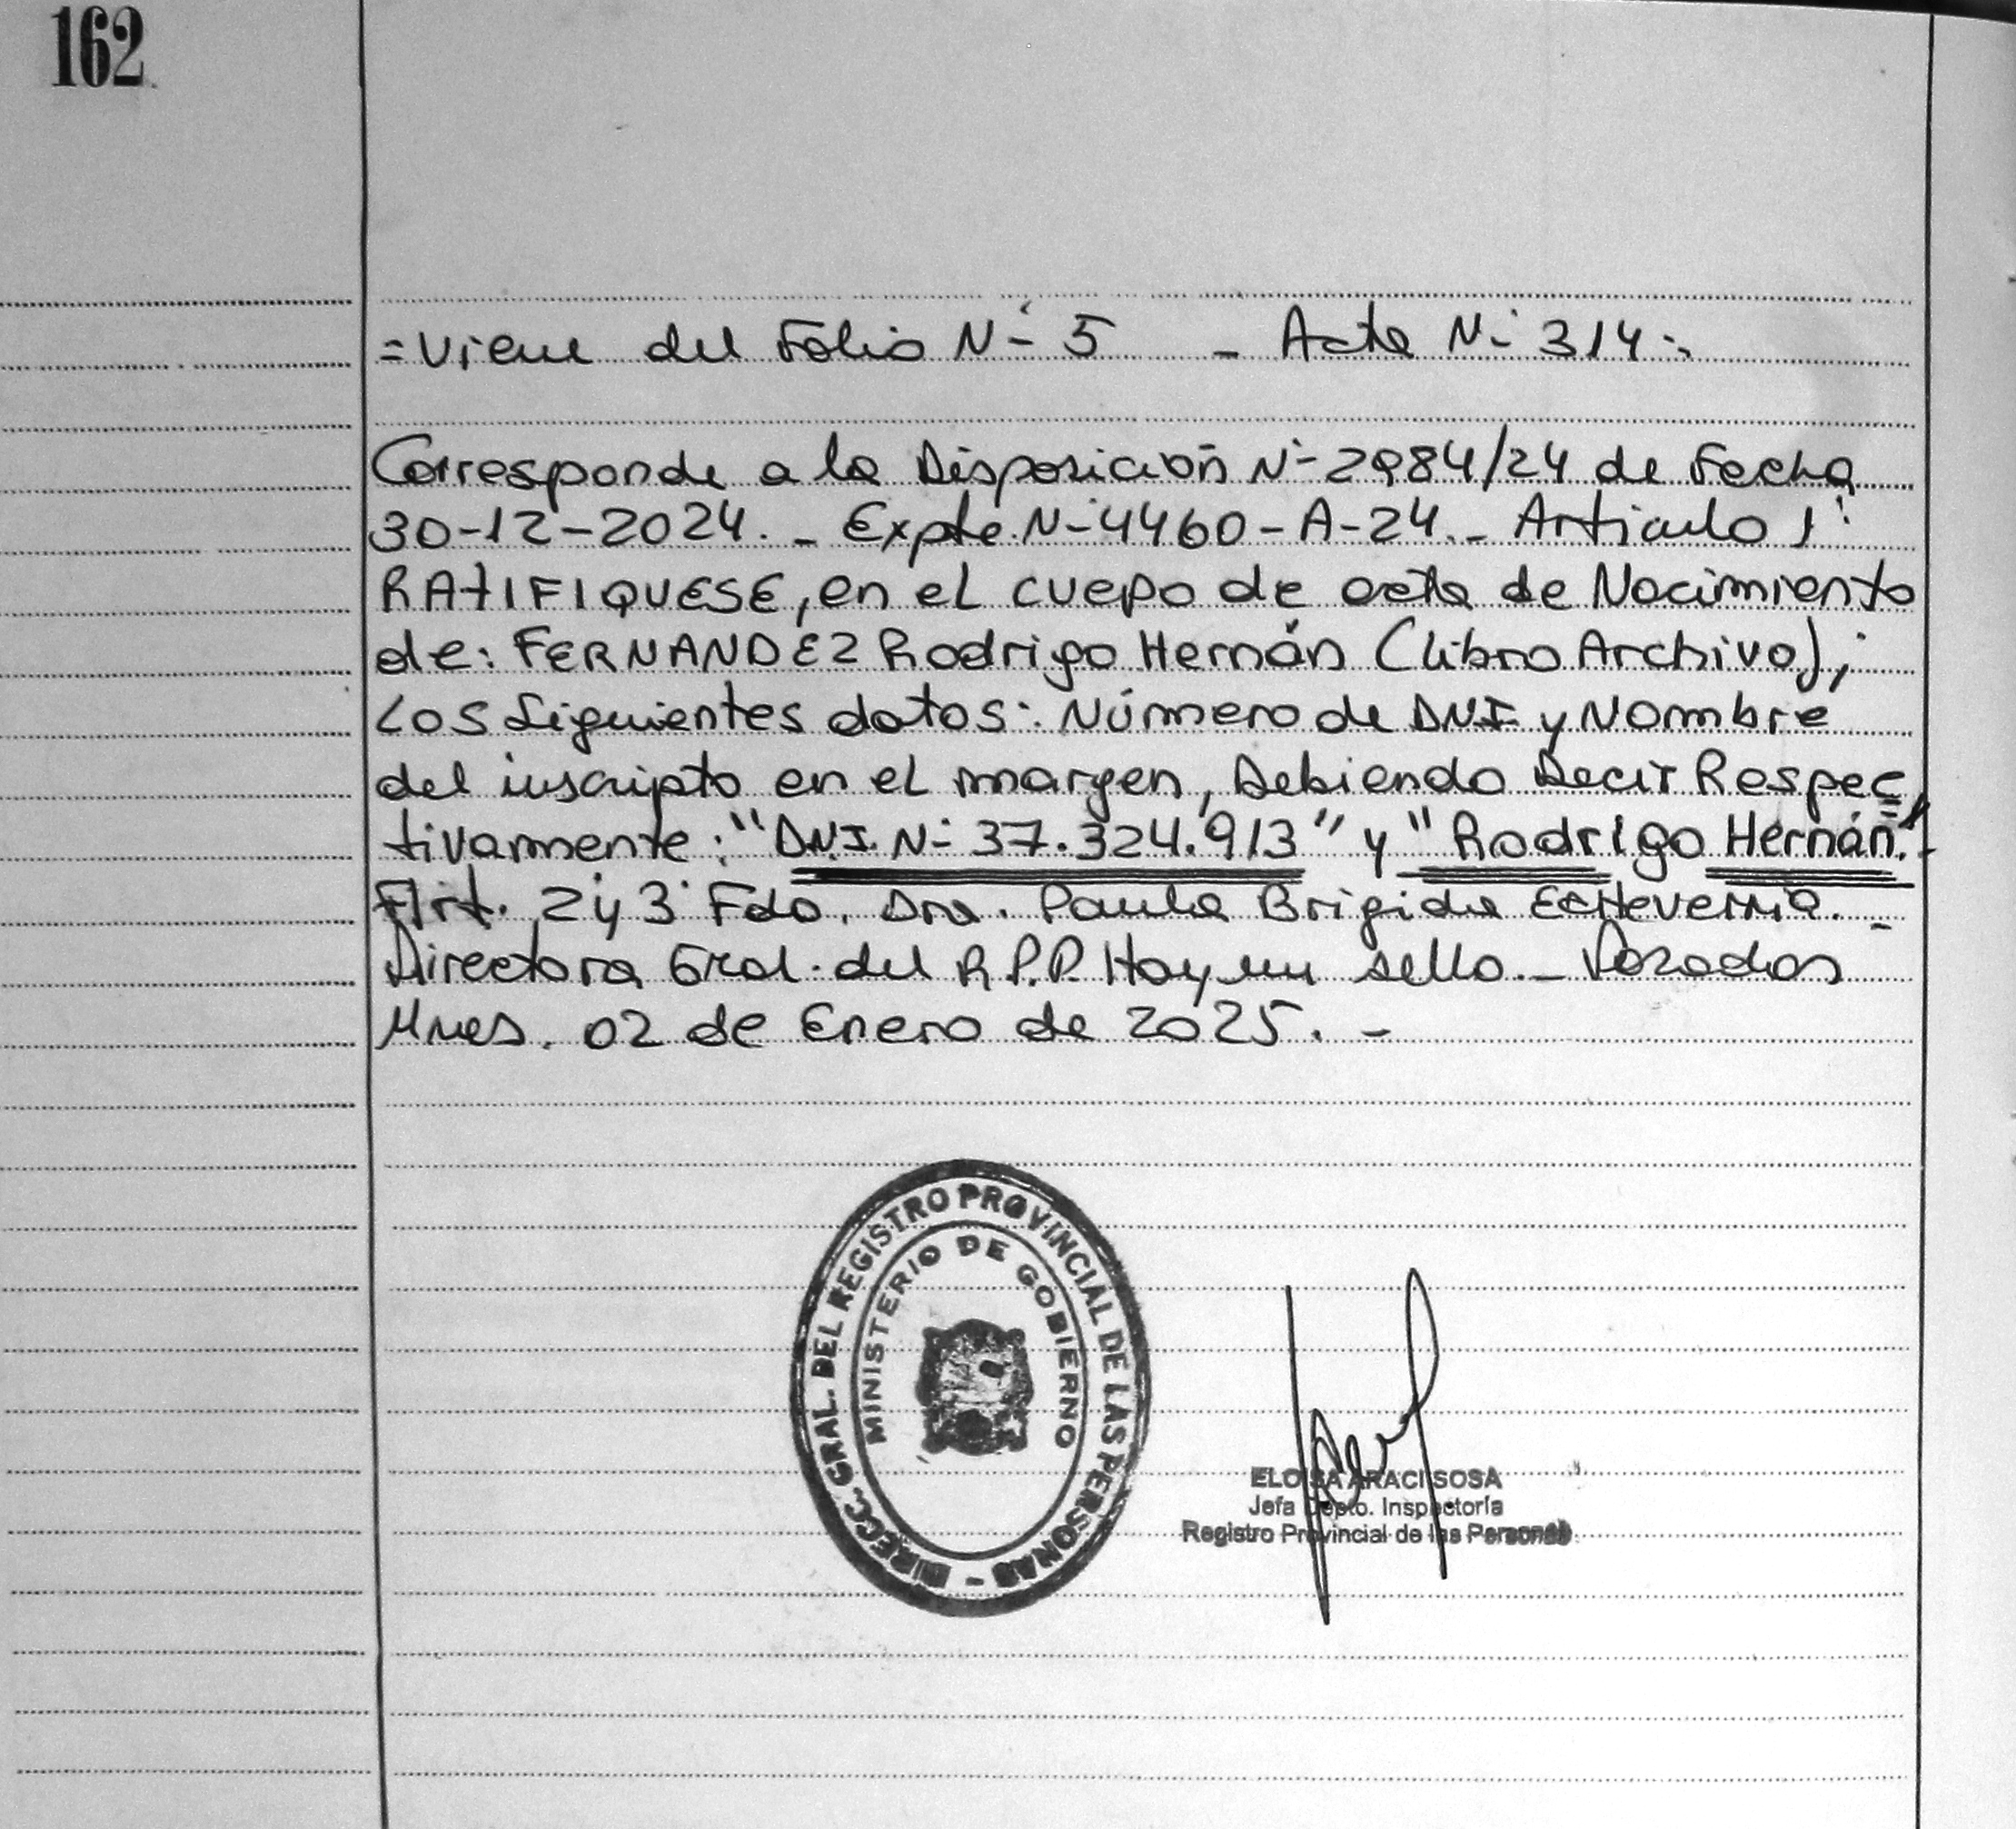 162
= Viene del Folio N- 5 - Acta N- 314 -
Corresponde a la Disposición N- 2984/24 de Fecha
30-12-2024. - Expte. N- 4460-A-24. - Articulo 1°
RATIFIQUESE, en el cuepo de acta de Nacimiento
de: FERNANDEZ Rodrigo Hernán (Libro Archivo);
Los Siguientes datos: Número de DNI y Nombre
del inscripto en el margen, Debiendo Decir Respec
tivamente: "DNI. N- 37.324.913" y "Rodrigo Hernán".-
Art. 2 y 3 Fdo. Dra. Paula Brigida Echeverria. -
Directora Gral. del R.P.P. Hay un sello. - Posadas
Mnes. 02 de Enero de 2025. -
DIRECC. GRAL. DEL REGISTRO PROVINCIAL DE LAS PERSONAS -
MINISTERIO DE GOBIERNO
ELOISA ARACI SOSA
Jefa Depto. Inspectoría
Registro Provincial de las Personas